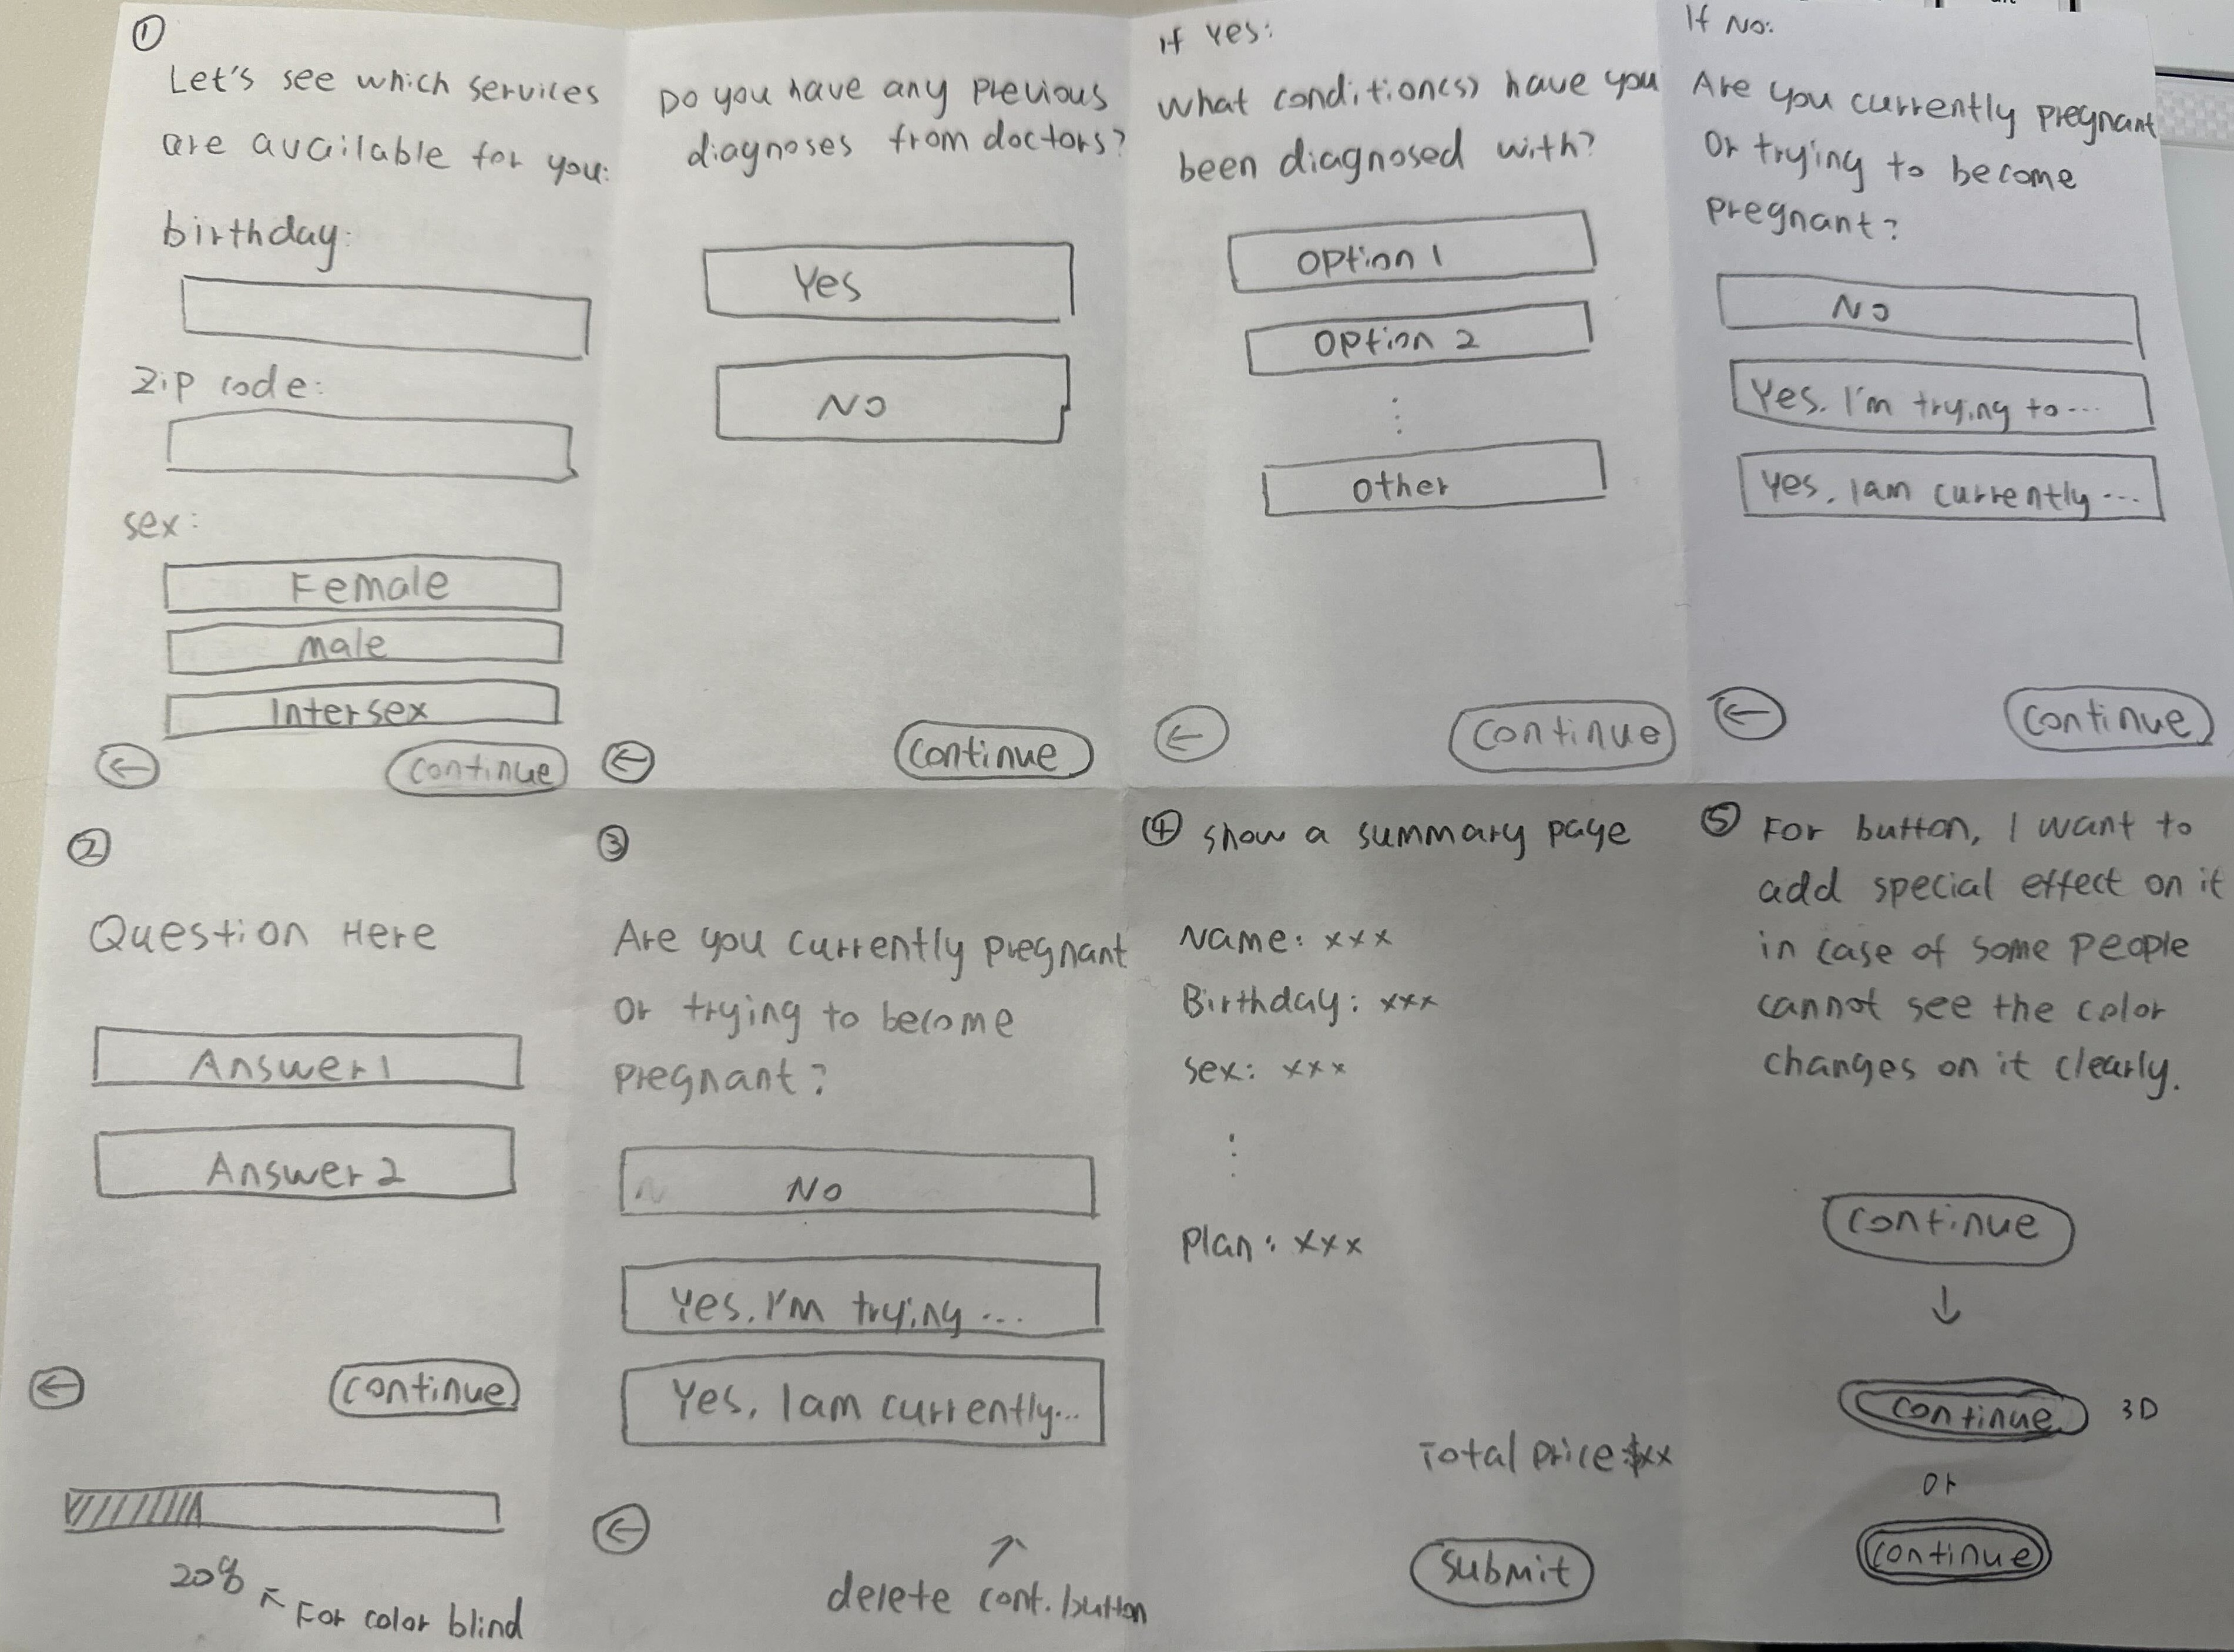 ①
Let's see which services
are available for you:
birthday:
Zip code:
sex:
Female
male
Intersex
←
continue
Do you have any previous
diagnoses from doctors?
Yes
No
←
continue
If Yes:
What condition(s) have you
been diagnosed with?
option 1
option 2
⋮
other
←
continue
If No:
Are you currently pregnant
or trying to become
pregnant?
No
Yes. I'm trying to...
Yes, I am currently...
←
continue
②
Question Here
Answer 1
Answer 2
←
continue
20%
↖ For color blind
③
Are you currently pregnant
or trying to become
pregnant?
No
Yes. I'm trying ...
Yes, I am currently...
←
↗
delete cont. button
④ show a summary page
Name: xxx
Birthday: xxx
sex: xxx
⋮
plan: xxx
Total price:$xx
submit
⑤ For button, I want to
add special effect on it
in case of some people
cannot see the color
changes on it clearly.
continue
↓
continue 3D
or
continue